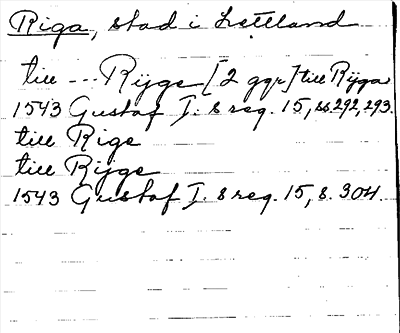 Riga, stad i Lettland
till --- Rijge [2 ggr] till Rijga
1543 Gustaf I:s reg. 15, ss 292, 293.
till Rige
till Rijge
1543 Gustaf I:s reg. 15, s. 304.